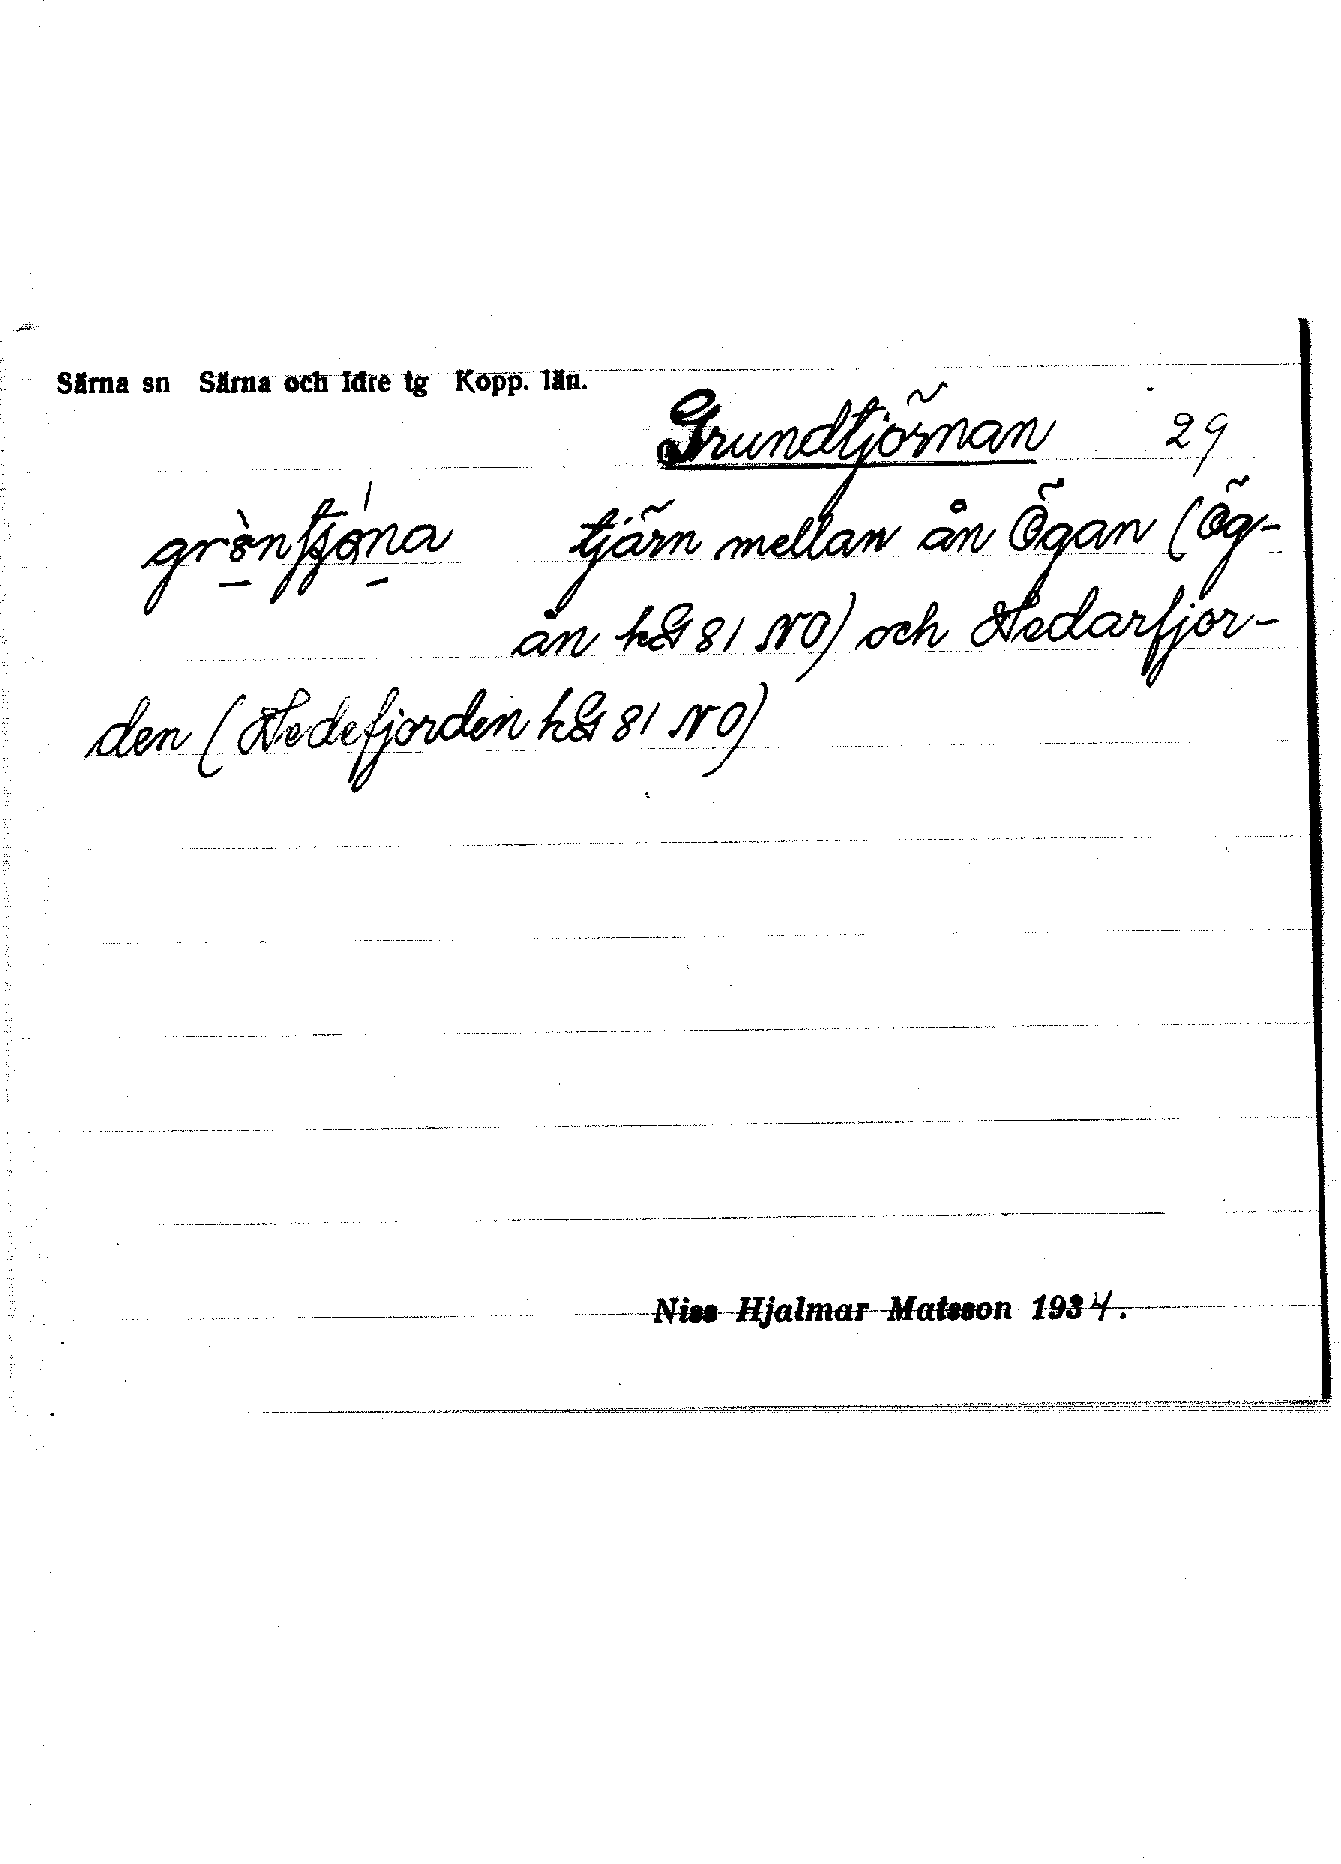 Särna sn Särna och Idre tg Kopp. län.
Grundtjörnan 29
tjärn mellan ån Ögan (Ög-
ån hG 81 NO) och Hedarfjor-
den (Hedefjorden hG 81 NO)
Niss Hjalmar Matsson 1934.